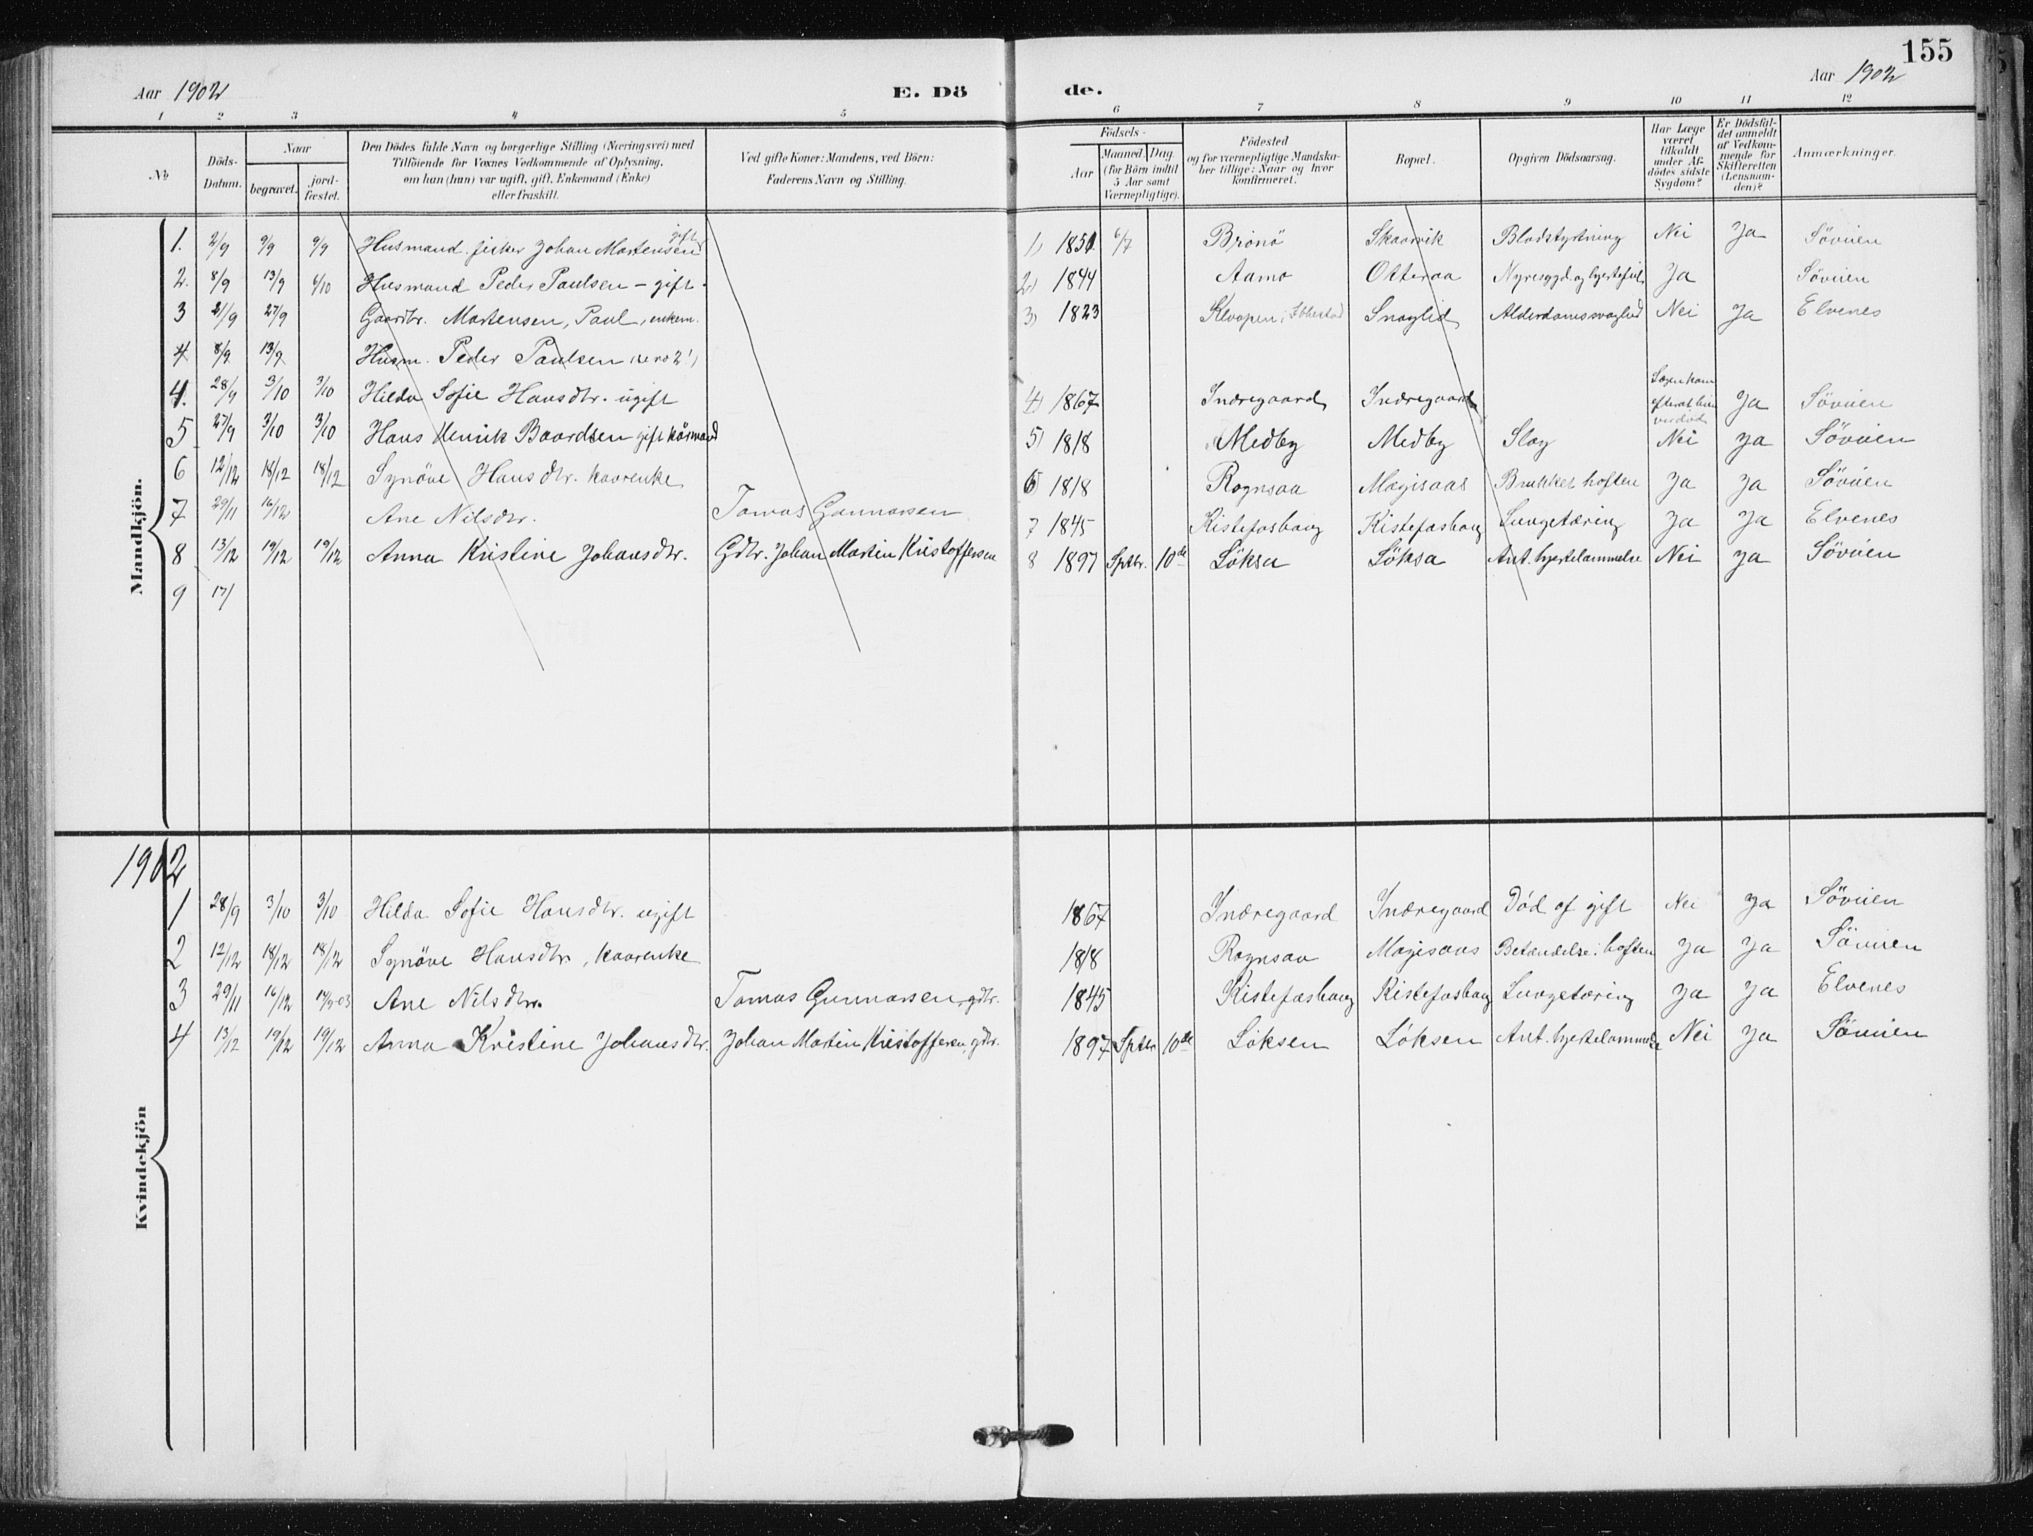 155
Aar 1902 E. Dö de. Aar 1902
1 2 3 4 5 6 7 8 9 10 11 12
№ Döds-Datum. Naar begravet. jord-fæstet. Den Dödes fulde Navn og borgerlige Stilling (Næringsvei) med Tilföiende for Voxnes Vedkommende af Oplysning, om han (hun) var ugift, gift, Enkemand (Enke) eller fraskilt. Ved gifte Koner: Mandens, ved Börn: Faderens Navn og Stilling. Födsels- Aar Maaned. Dag. (for Börn indtil 5 Aar samt Værnepligtige). Födested og for værnepligtige Mandska-ber tillige: Naar og hvor konfirmeret. Bopæl. Opgiven Dödsaarsag. Har Læge været tilkaldt under Af-dödes sidste Sygdom? Er Dödsfal-det anmeldt af Vedkom-mende for Skifteretten (Lensman-den)? Anmærkninger.
Mandkjön.
1. 2/9 9/9 9/9 Husmand, fisker Johan Martensen gift 1) 1851 6/7 Brönö Skaarvik Blodstyrtning Nei Ja Sövien
2. 8/9 13/9 6/10 Husmand Peder Paulsen – gift. 2) 1844 Aamo Otteraa Nyresygd. og hjertefeil Ja Sövien
3 21/9 27/9 Gaardbr. Martensen, Paul, enkem. 3) 1823 Kloopen, Ibbestad Snoglid Alderdomssvaghed Nei Ja Elvenes
4 8/9 13/9 Husm. Peder Paulsen (se no 2!)
4. 28/9 3/10 3/10 Hilda Sofie Hansdtr. ugift 4) 1867 Indregaard Indregaard Lægen kom efterat hun var död Ja Sövien
5 27/9 3/10 3/10 Hans Henrik Baardsen gift kårmand 5) 1818 Medby Medby Slag Nei Ja Sövien
6 12/12 18/12 18/12 Synöve Hansdtr. kaarenke 6 1818 Rognsaa Magisaas Brukket hoften Ja Ja Sövien
7 29/11 16/12 Ane Nilsdtr. Tomas Gunnarsen 7 1845 Kistefosbaug Kistefosbaug Lungetæring Ja Ja Elvenes
8 13/12 19/12 19/12 Anna Kristine Johansdtr. Gdbr. Johan Martin Kristoffersen 8 1897 Sptbr. 10de Löksa Löksa Ant. hjertelammelse Nei Ja Sövien
9 17/
1902
Kvindekjön
1 28/9 3/10 3/10 Hilda Sofie Hansdtr. ugift 1867 Indregaard Indregaard Död af gift Nei Ja Sövien
2 12/12 18/12 18/12 Synöve Hansdtr, kaarenke 1818 Rognsaa Magisaas Betændelse i hoften Ja Ja Sövien
3 29/11 16/12 Ane Nilsdtr. Tomas Gunnarsen, gdbr. 1845 Kistefosbaug Kistefosbaug Lungetæring Ja Ja Elvenes
4 13/12 19/12 19/12 Anna Kristine Johansdtr. Johan Martin Kristoffersen, gdbr. 1897 Sptbr 10de Löksen Löksen Ant. hjertelammelse Nei Ja Sövien